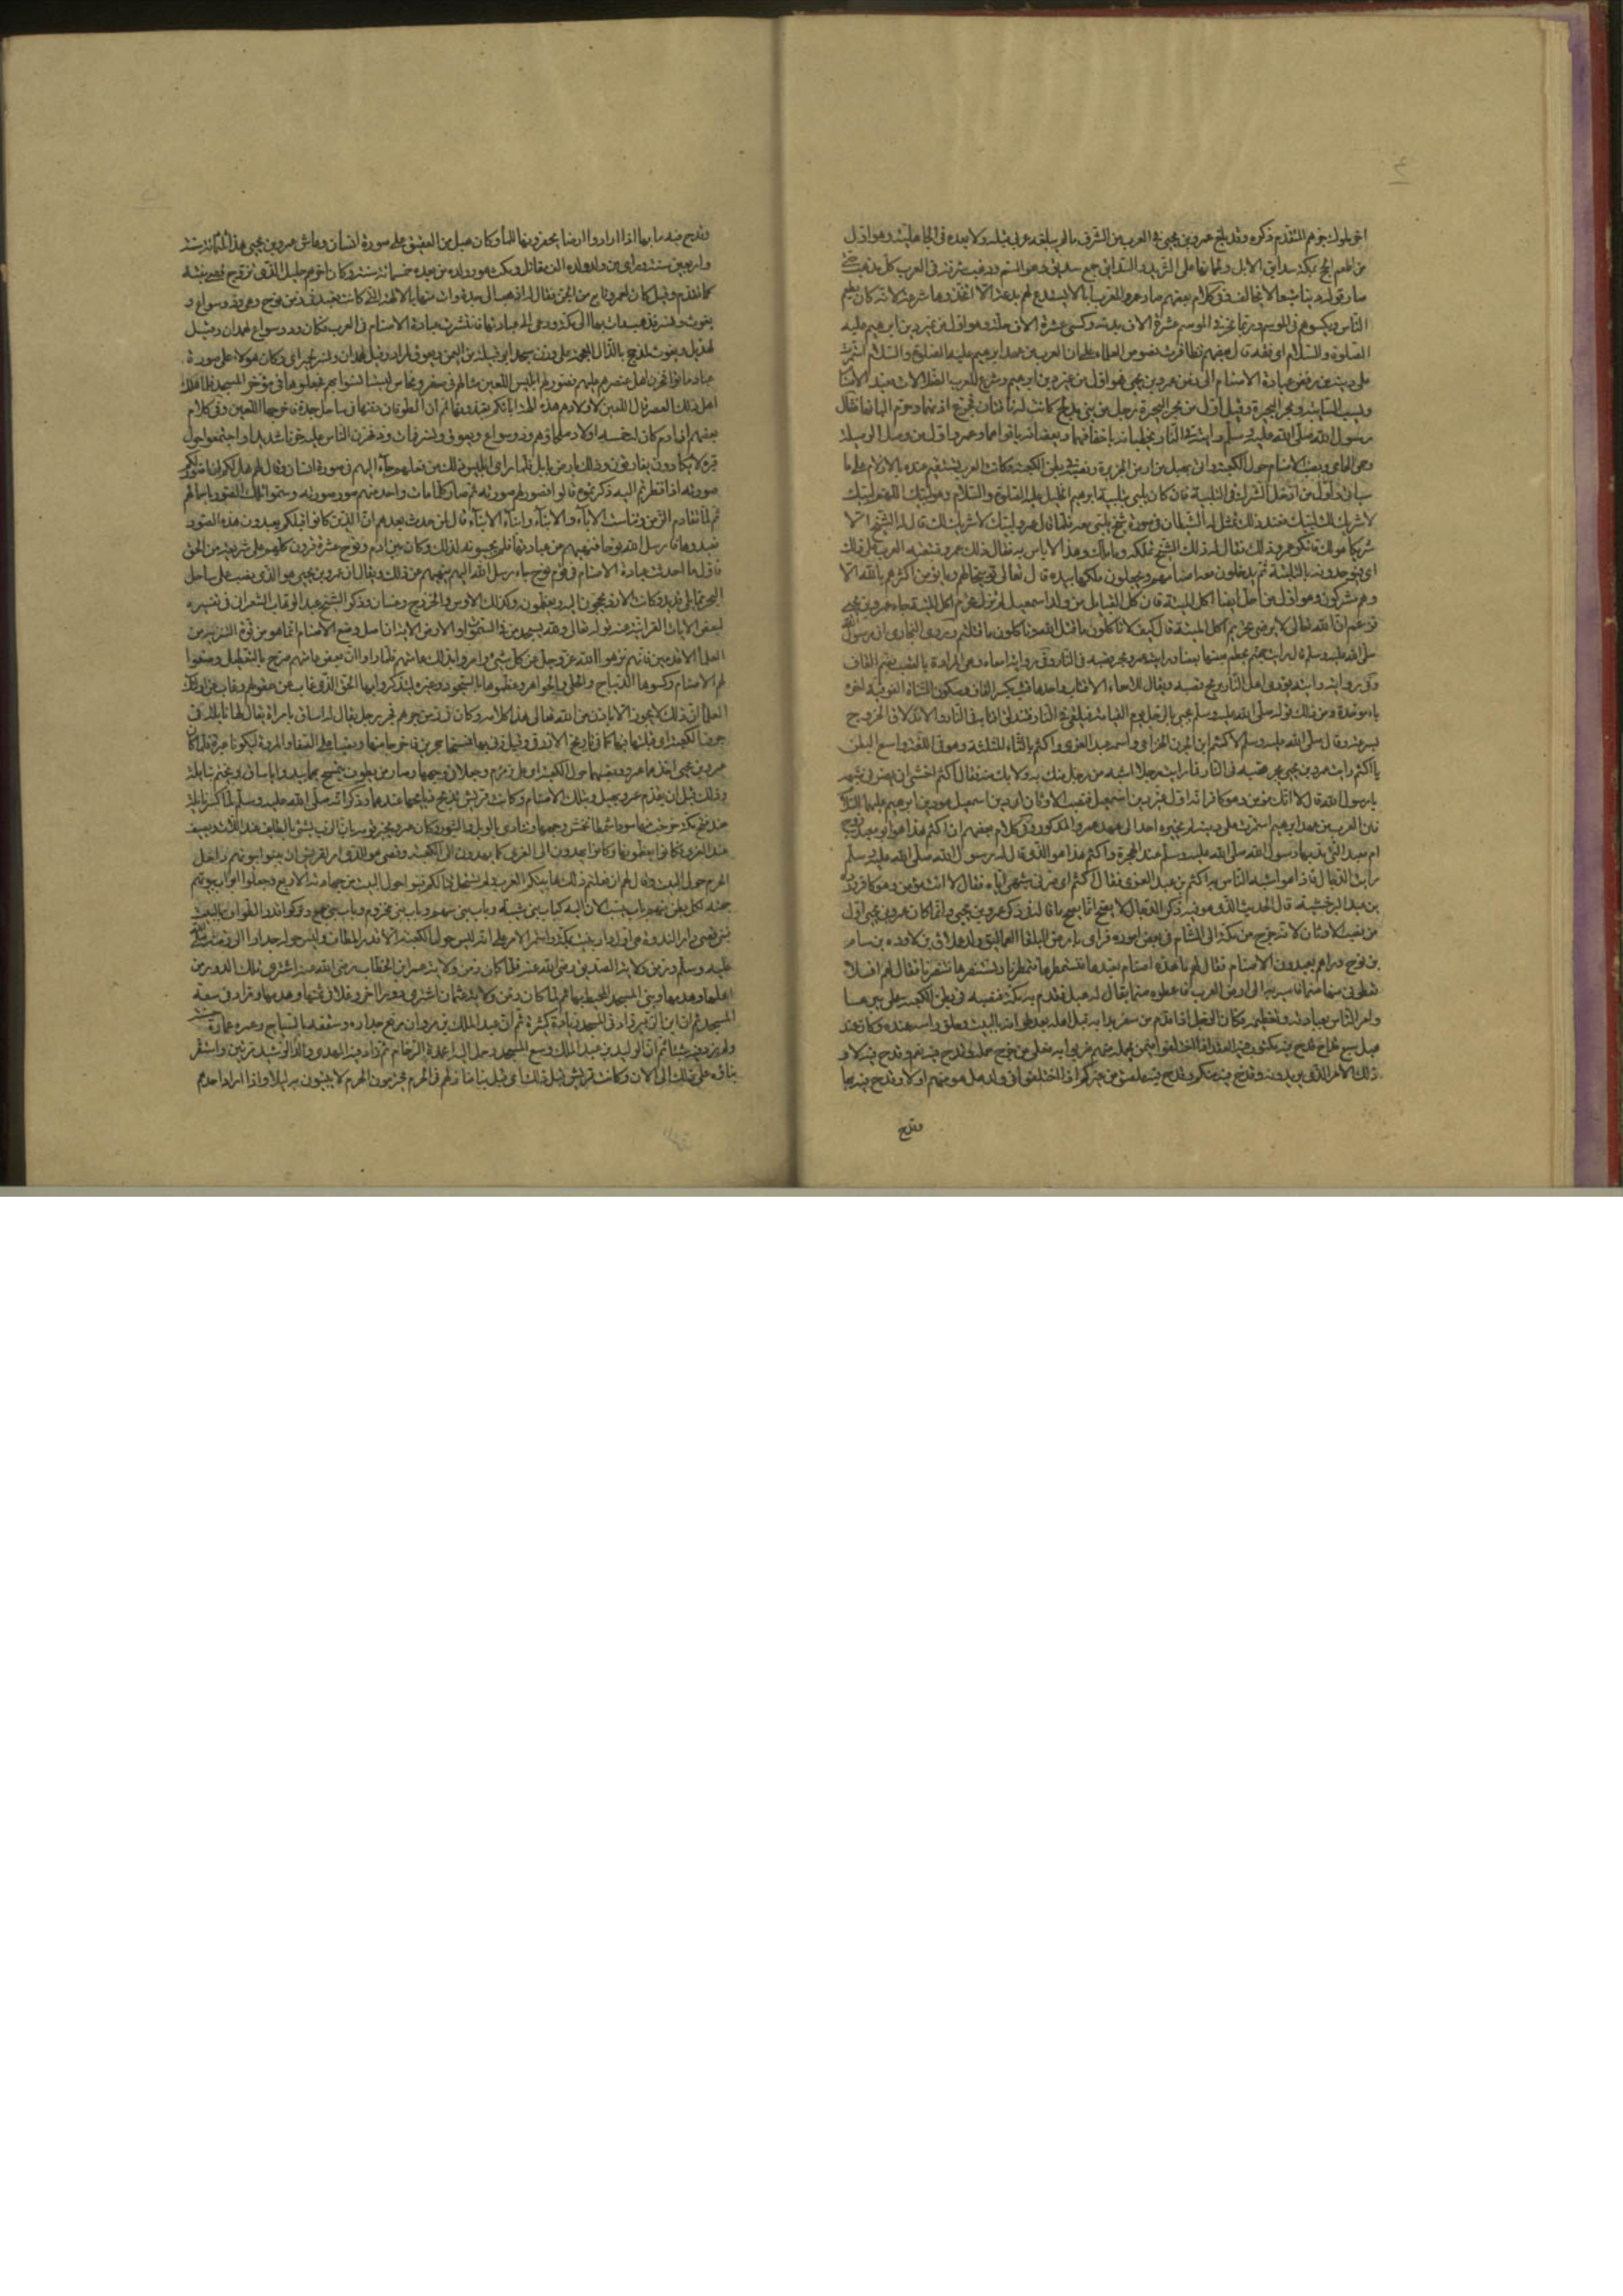 اخر ملوك جرهم المتقدم ذكره وقد بلغ عمرو بن لحى فى العرب من الشرف ما لم يبلغه عربى قبله ولا بعده فى الجاهلية وهو اول
من اطعم الحج بمكة سدايف الابل ولحمانها على الثريد والسدايف جمع سديف وهو السنام وذهب شرفه فى العرب كل مذهب حتى
صار قوله دينا متبعا لا يخالف وفى كلام بعضهم صار عمرو للعرب ربا لا يبتدع لهم بدعة الا اتخذوها شرعة لانه كان يطعم
الناس ويكسوهم فى الموسم وربما نحر فى الموسم عشرة الاف بدنة وكسى عشرة الاف حلة وهو اول من غير دين ابرهيم عليه
الصلوة والسلام اى فقد قال بعضهم تظافرت نصوص العلماء على ان العرب من عهد ابرهيم عليه الصلوة والسلام استمرت
على دينه من رفض عبادة الاصنام الى زمن عمرو بن لحى فهو اول من غير دين ابرهيم وشرع للعرب الضلالات فعبد الاصنام
وسيب السايبة وبحر البحيرة وقيل اول من بحر البحيرة رجل من بنى مدلج كانت له ناقتان فجدع اذنيهما وحرم البانهما فقال
رسول الله صلى الله عليه وسلم رايته فى النار يخبطانه باخفافهما ويعضانه بافواههما وعمرو اول من وصل الوصيلة
وحمى الحامى ونصب الاصنام حول الكعبة واتى بهبل من ارض الجزيرة ونصبه فى بطن الكعبة وكانت العرب تستقسم عنده بالازلام على ما
سياتى واول من ادخل الشرك فى التلبية فانه كان يلبى بتلبية ابرهيم الخليل عليه الصلوة والسلام وهى لبيك اللهم لبيك
لا شريك لك لبيك فعند ذلك تمثل له الشيطان فى صورة شيخ يلبى معه فلما قال عمرو لبيك لا شريك لك قال له الشيخ الا
شريكا هو لك فانكر عمرو ذلك فقال له ذلك الشيخ تملكه وما ملك وهذا لا باس به فقال ذلك عمرو فتبعته العرب على ذلك
اى فيوحدونه بالتلبية ثم يدخلون معه اصنامهم ويجعلون ملكها بيده قال تعالى توبيخا لهم وما يؤمن اكثرهم بالله الا
وهم مشركون وهو اول من احل ايضا اكل الميتة فان كل القبايل من ولد اسمعيل لم تزل تحرم اكل الميتة حتى جاء عمرو بن لحى
فزعم ان الله تعالى لا يرضى تحريم اكل الميتة قال كيف لا تاكلون ما قتل الله وتاكلون ما قتلتم وروى البخارى ان رسول الله
صلى الله عليه وسلم قال رايت جهنم يحطم بعضها بعضا ورايت عمرو يجر قصبه فى النار وفى رواية امعاءه وهى المرادة بالقصب بضم القاف
وفى رواية رايته يؤذى اهل النار بريح قصبه ويقال للامعاء الاقتاب واحدها قتب بكسر القاف وسكون المثناة الفوقية اخره
باء موحدة ومن ذلك قوله صلى الله عليه وسلم يجىء بالرجل يوم القيامة فيلقى فى النار فتندلق اقتابه فى النار والاندلاق الخروج
بسرعة وقال صلى الله عليه وسلم لاكثم ابن الجون الخزاعى واسمه عبد العزى واكثم بالثاء المثلثة وهو فى اللغة واسع البطن
يا اكثم رايت عمرو بن لحى يجر قصبه فى النار فما رايت رجلا اشبه من رجل منك به ولا بك منه فقال اكثم اخشى ان يضرنى شبهه
يا رسول الله قال لا انك مؤمن وهو كافر انه اول من غير دين اسمعيل فنصب الاوثان اى دين اسمعيل هو دين ابرهيم عليهما السلام
فان العرب من عهد ابرهيم استمرت على دينه لم يغيره احد الى عهد عمرو المذكور وفى كلام بعضهم ان اكثم هذا هو ابو معبد زوج
ام معبد التى مر بها رسول الله صلى الله عليه وسلم عند الهجرة واكثم هذا هو الذى قال له رسول الله صلى الله عليه وسلم
رايت الدجال فاذا هو اشبه الناس به اكثم بن عبد العزى فقال اكثم اى يضرنى شبهى اياه فقال لا انت مؤمن وهو كافر ورده
بن عبد البر حيث قال الحديث الذى هو فيه ذكر الدجال لا يصح انما يصح ما قاله فى ذكر عمرو بن لحى وانما كان عمرو بن لحى اول
من نصب الاوثان لانه خرج من مكة الى الشام فى بعض اموره فراى بارض البلقا العماليق ولد عملاق بن لاوذ بن سام
بن نوح وراهم يعبدون الاصنام فقال لهم ما هذه قالوا اصنام نعبدها نستمطرها فتمطرنا ونستنصرها فتنصرنا فقال لهم افلا
تعطونى منها صنما فاسير به الى ارض العرب فاعطوه صنما يقال له هبل فقدم به مكة فنصبه فى بطن الكعبة على يسارها
وامر الناس بعبادته وتعظيمه فكان الرجل اذا قدم من سفر بدا به قبل اهله بعد طوافه بالبيت وحلق راسه عنده وكان عند
هبل سبع قداح قدح فيه مكتوب
ذلك الامر الذى يريدونه وقدح فيه منكم وقدح فيه ملصق من غيركم اذا اختلفوا فى ولد هل هو منهم او لا وقدح فيه بها
وقدح
وقدح فيه ما بها اذا ارادوا ارضا يحفرونها للماء وكان هبل من العقيق على صورة انسان وعاش عمرو بن لحى هذا ثلثمائة سنة
واربعين سنة وراى من ولده وولد ولده الف مقاتل ومكث هو وولده من بعده خمسمائة سنة وكان اخرهم حليل الذى تزوج قصى بنته
كما تقدم وقيل كان لعمرو تابع من الجن فقال له اذهب الى جدة وات منها بالالهة التى كانت تعبد فى زمن نوح وهى ود وسواع و
يغوث ونسر فذهب واتى بها الى مكة ودعى الى عبادتها فانتشرت عبادة الاصنام فى العرب فكان ود وسواع لهمدان وقيل
لهذيل ويغوث لمذحج بالذال المعجمة على وزن مسجد ابو قبيلة من اليمن ويعوق لمراد وقيل لهمدان ونسر لحمير اى وكان هولاء على صورة
عباد ماتوا فحزن اهل عصرهم عليهم فصور لهم ابليس اللعين مثالهم من صفر ونحاس ليستانسوا بهم فجعلوها فى مؤخر المسجد فلما هلك
اهل ذلك العصر قال اللعين لاولادهم هذه الهة ابائكم تعبدونها ثم ان الطوفان دفنها فى ساحل جدة فاخرجها اللعين وفى كلام
بعضهم ان ادم كان له خمسة اولاد صلحاء وهم ود وسواع ويغوث ويعوق ونسر فمات ود فحزن الناس عليه حزنا شديدا واجتمعوا حول
قبره لا يكادون يفارقونه وذلك بارض بابل فلما راى ابليس ذلك من فعلهم جاء اليهم فى صورة انسان وقال لهم هل لكم ان اصور لكم
صورته اذا نظرتم اليه ذكرتموه قالوا نعم فصور لهم صورته ثم صار كلما مات واحد منهم صور صورته وسموا تلك الصور باسمائهم
ثم لما تقادم الزمن وتناست الاباء والابناء وابناء الابناء قال لمن حدث بعدهم ان الذين كانوا قبلكم يعبدون هذه الصور
فعبدوها فارسل الله نوحا فنهاهم عن عبادتها فلم يجيبوه لذلك وكان بين ادم ونوح عشرة قرون كلهم على شريعة من الحق
فاول ما حدثت عبادة الاصنام فى قوم نوح فارسل الله اليهم ينهيهم عن ذلك ويقال ان عمرو بن لحى هو الذى نصب على ساحل
البحر مما يلى قديد وكانت الازد يحجون اليه ويعظمونه وكذلك الاوس والخزرج وغسان وذكر الشيخ عبد الوهاب الشعرانى فى تفسيره
لبعض الايات القرانية عند قوله تعالى ولله يسجد من فى السموات والارض الاية ان اصل وضع الاصنام انما هو من قوة التنزيه من
العلماء الاقدمين فانهم نزهوا الله عز وجل عن كل شىء وامروا بذلك عامتهم فلما راوا ان بعض عامتهم صرح بالتعطيل وضعوا
لهم الاصنام وكسوها الديباج والحلى والجواهر وعظموها بالسجود وغيره ليتذكروا بها الحق الذى غاب عن عقولهم وغاب عن اولئك
العلماء ان ذلك لا يجوز الا باذن من الله تعالى هذا كلامه وكان فى زمن جرهم فجر رجل يقال له اساف بامراة يقال لها نايلة فى
جوف الكعبة اى قبلها فيها كما فى تاريخ الازرقى وقيل زنى بها فمسخا حجرين فاخرجا منها ونصبا على الصفا والمروة ليكونا عبرة فلما كان
عمرو بن لحى اخذهما ونصبهما حول الكعبة اى على زمزم وجعلا فى وجهها وصار من يطوف يتمسح بهما يبدا باساف ويختم بنايلة
وذلك قبل ان يقدم عمرو بهبل وبتلك الاصنام وكانت قريش تذبح ذبايحها عندهما وذكر انه صلى الله عليه وسلم لما كسر نايلة
عند فتح مكة خرجت منها سوداء شمطاء تخمش وجهها وتنادى بالويل والثبور وكان عمرو يخبر قومه بان الرب يشتو بالطايف عند اللات ويصيف
عند العزى فكانوا يعظمونها وكانوا يهدون الى العزى كما يهدون الى الكعبة وقصى هو الذى امر قريش ان يبنوا بيوتهم داخل
الحرم حول البيت وقال لهم ان فعلتم ذلك هابتكم العرب ولم تستحل قتالكم فبنوا حول البيت من جهاته الاربع وجعلوا ابواب بيوتهم
جهته لكل بطن منهم باب ينسب الان اليه كباب بنى شيبة وباب بنى سهم وباب بنى مخزوم وباب بنى جمح وتركوا قدر الطواف بالبيت
فبنى قصى دار الندوة وهى اول دار بنيت بمكة واستمر الامر على انه ليس حول الكعبة الا قدر المطاف وليس حوله جدار الى زمنه صلى الله
عليه وسلم وزمن ولاية الصديق رضى الله عنه فلما كان زمن ولاية عمر ابن الخطاب رضى الله عنه اشترى تلك الدور من
اهلها وهدمها وبنى المسجد المحيط بها ثم لما كان زمن ولاية عثمان اشترى دورا اخر وغلا فى ثمنها وهدمها وزاد فى سعة
المسجد ثم ان ابن الزبير زاد فى المسجد زيادة كثيرة ثم ان عبد الملك بن مروان رفع جداره وسقفه بالساج وعمره عمارة حسنة
ولم يزد فيه شيئا ثم ان الوليد بن عبد الملك وسع المسجد وحمل اليه اعمدة الرخام ثم زاد فيه المهدى والد الرشيد مرتين واستقر
بناؤه على ذلك الى الان وكانت قريش قبل ذلك اى قبل بناء منازلهم فى الحرم يحترمون الحرم لا يبيتون به ليلا واذا اراد احدهم